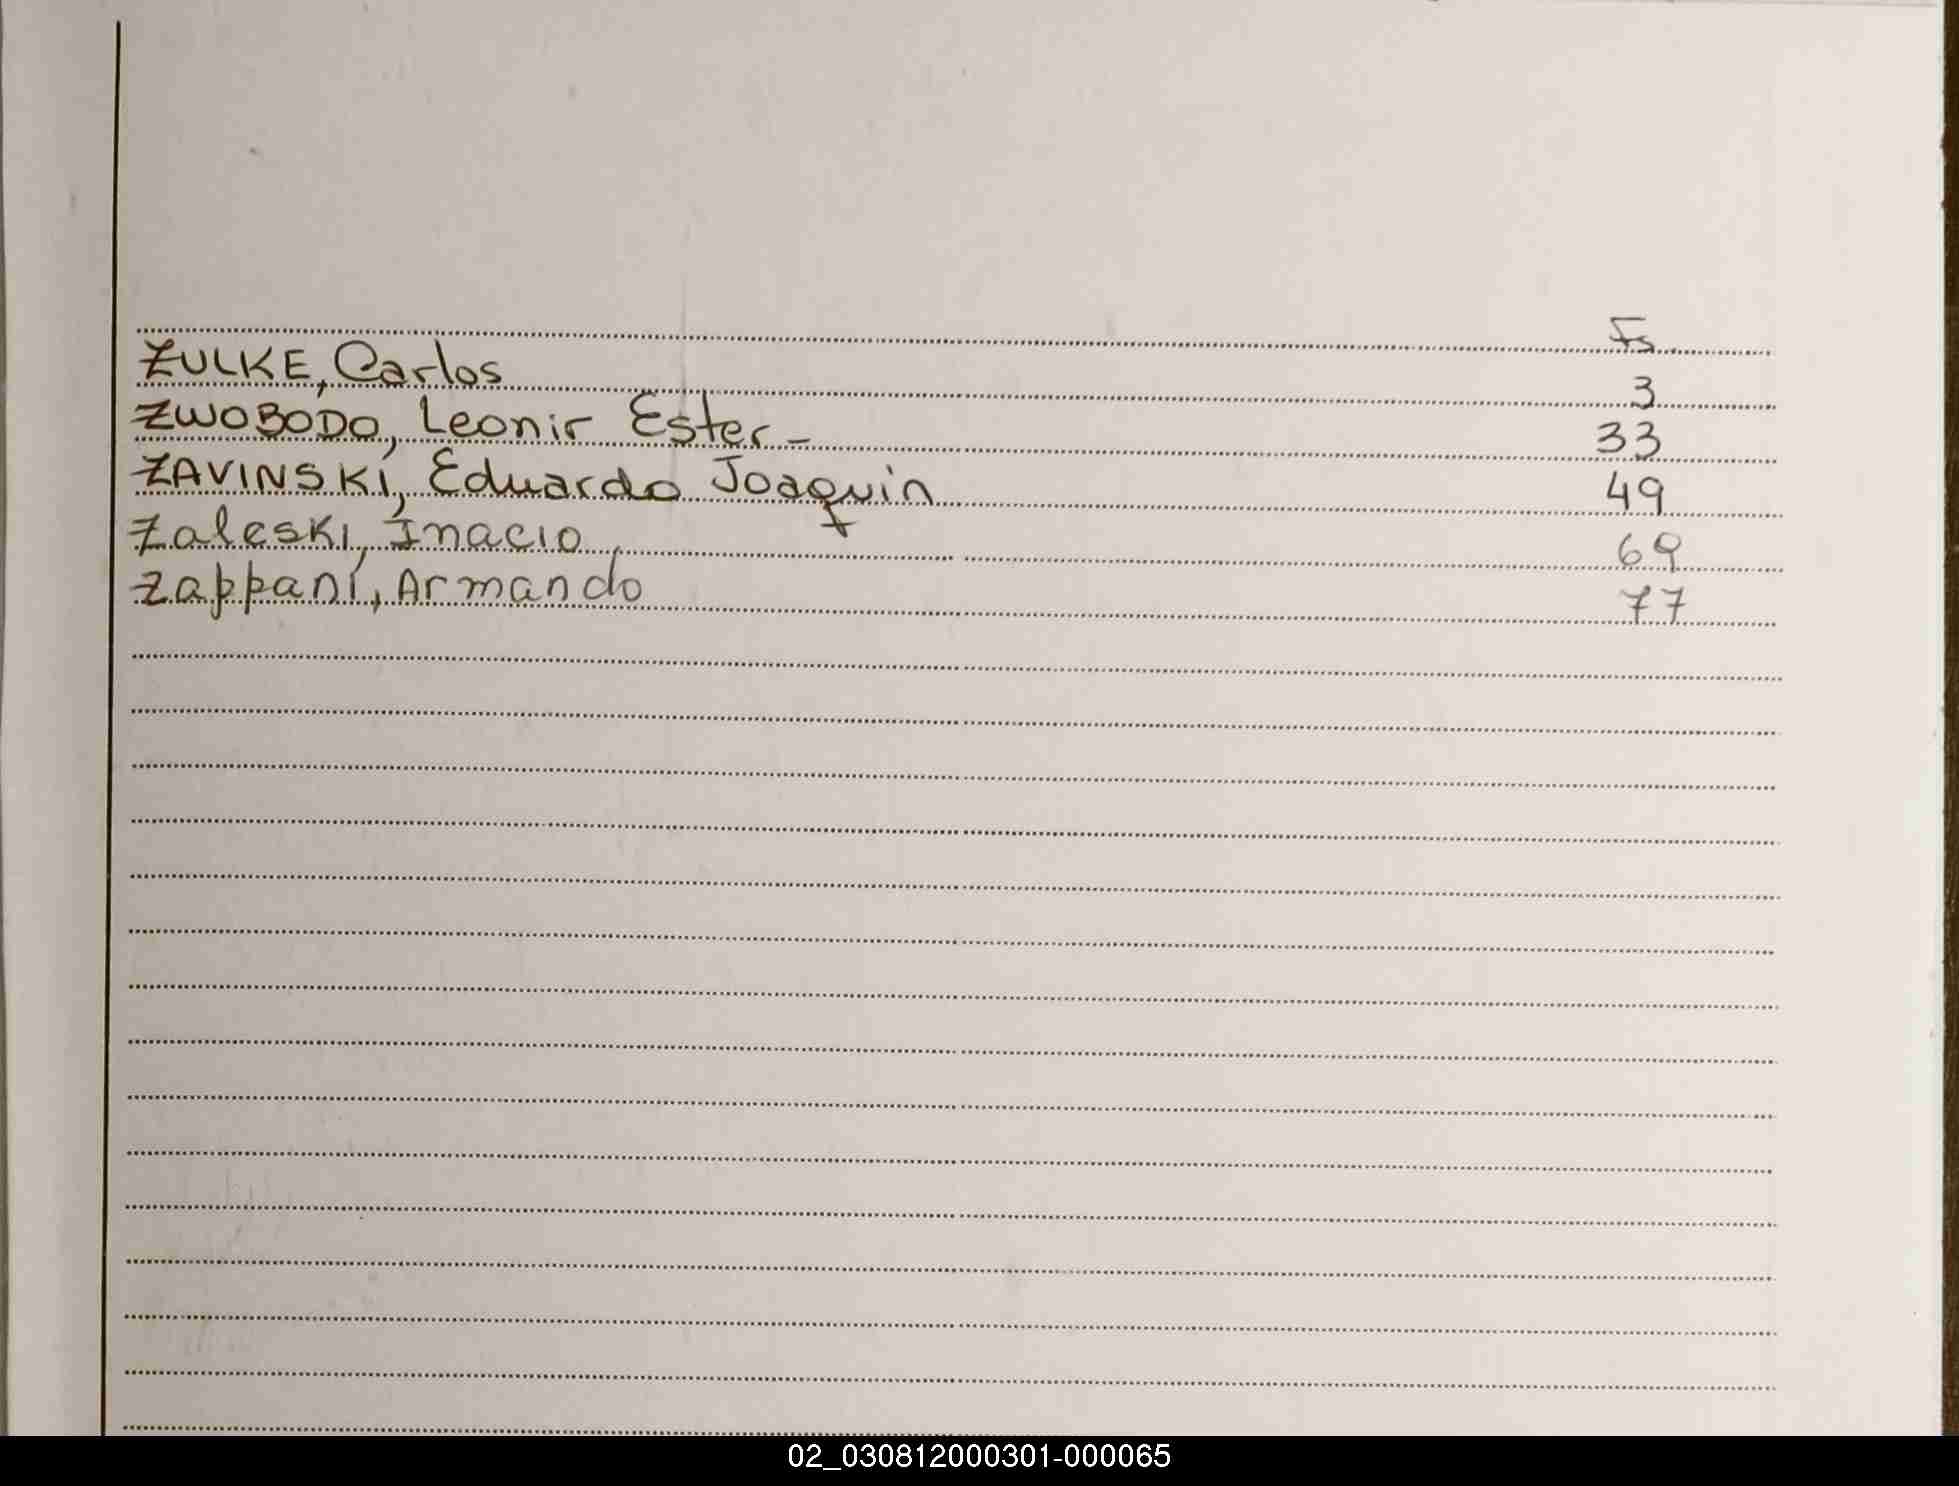 Fs.
ZULKE, Carlos 3
ZWOBODO, Leonir Ester - 33
ZAVINSKI, Eduardo Joaquin 49
Zaleski, Inacio 69
Zappani, Armando 77
02_030812000301-000065